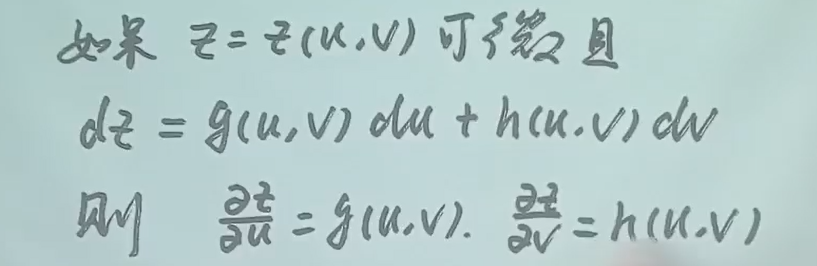 如果 z = z(u,v) 可微且
dz = g(u,v) du + h(u,v) dv
则 ∂z/∂u = g(u,v). ∂z/∂v = h(u,v)